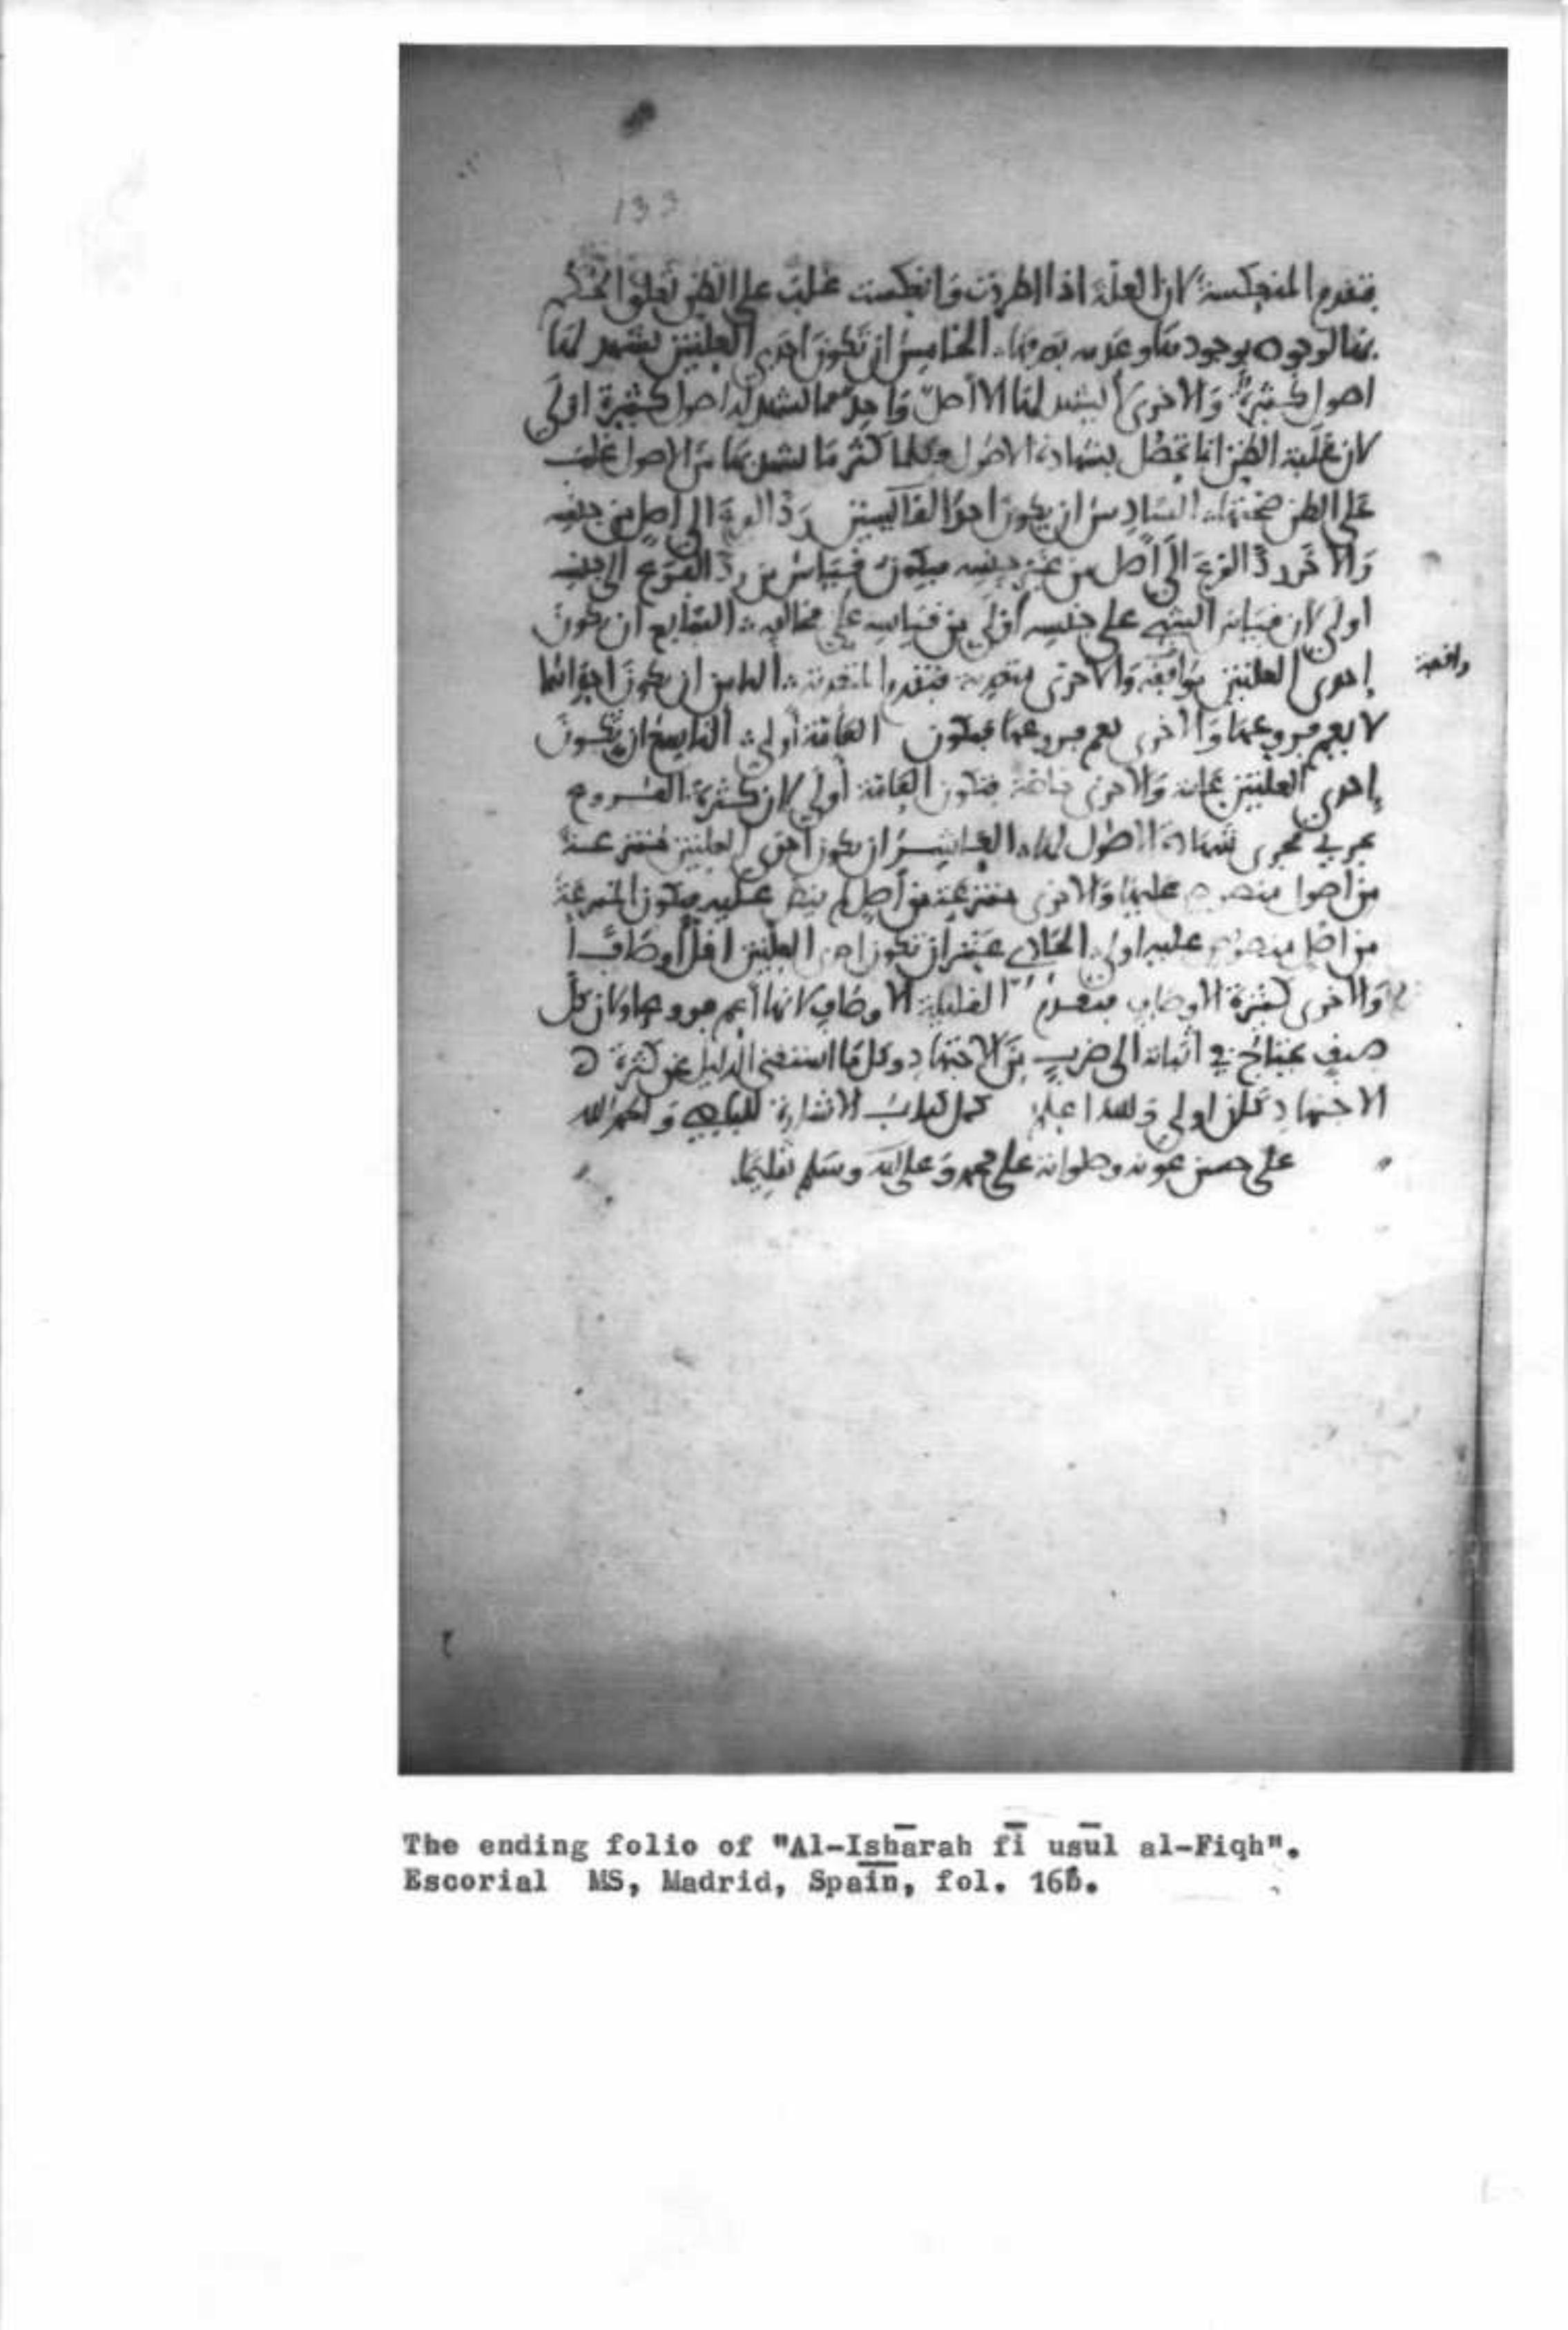 133
فتقدم المنعكسة لان العلة اذا اطردت وانعكست غلب على الظن تعلق الحكم
بها لوجوده بوجودها وعدمه بعدمها الخامس ان تكون احدى العلتين يشهد لها
اصول كثيرة والاخرى لا يشهد لها الا اصل واحد فما يشهد له اصول كثيرة اولى
لان غلبة الظن انما تحصل بشهادة الاصول وكلما كثر ما يشهد بها من الاصول غلب
على الظن صحتها السادس ان يكون احد القياسين رد الفرع الى اصل من جنسه
والاخر رد الفرع الى اصل من غير جنسه فيكون قياس من رد الفرع الى جنسه
اولى لان قياس الشيء على جنسه اولى من قياسه على مخالفه السابع ان تكون
إحدى العلتين واقفة والاخرى متعدية فتقدم المتعدية الثامن ان تكون احداهما
واقفة
لا تعم فروعها والاخرى تعم فروعها فتكون العامة أولى التاسع ان تكون
إحدى العلتين عامة والاخرى خاصة فتكون العامة أولى لان كثرة الفروع
تجري مجرى شهادة الاصول لها العاشر ان تكون احدى العلتين منتزعة
من أصول منصوص عليها والاخرى منتزعة من أصل لم ينص عليه فتكون المنتزعة
من اصل منصوص عليه اولى الحادي عشر أن تكون احدى العلتين اقل أوصافا
والاخرى كثيرة الاوصاف فتقدم القليلة الاوصاف لانها أعم فروعا ولان كل
وصف يحتاج في اثباته الى ضرب من الاجتهاد وكل ما استغنى الدليل عن كثرة
الاجتهاد كان اولى والله اعلم كمل كتاب الاشارة للباجي والحمد لله
على حسن عونه وصلواته على محمد وعلى اله وسلم تسليما
The ending folio of "Al-Ishārah fī usūl al-Fiqh".
Escorial MS, Madrid, Spain, fol. 16b.